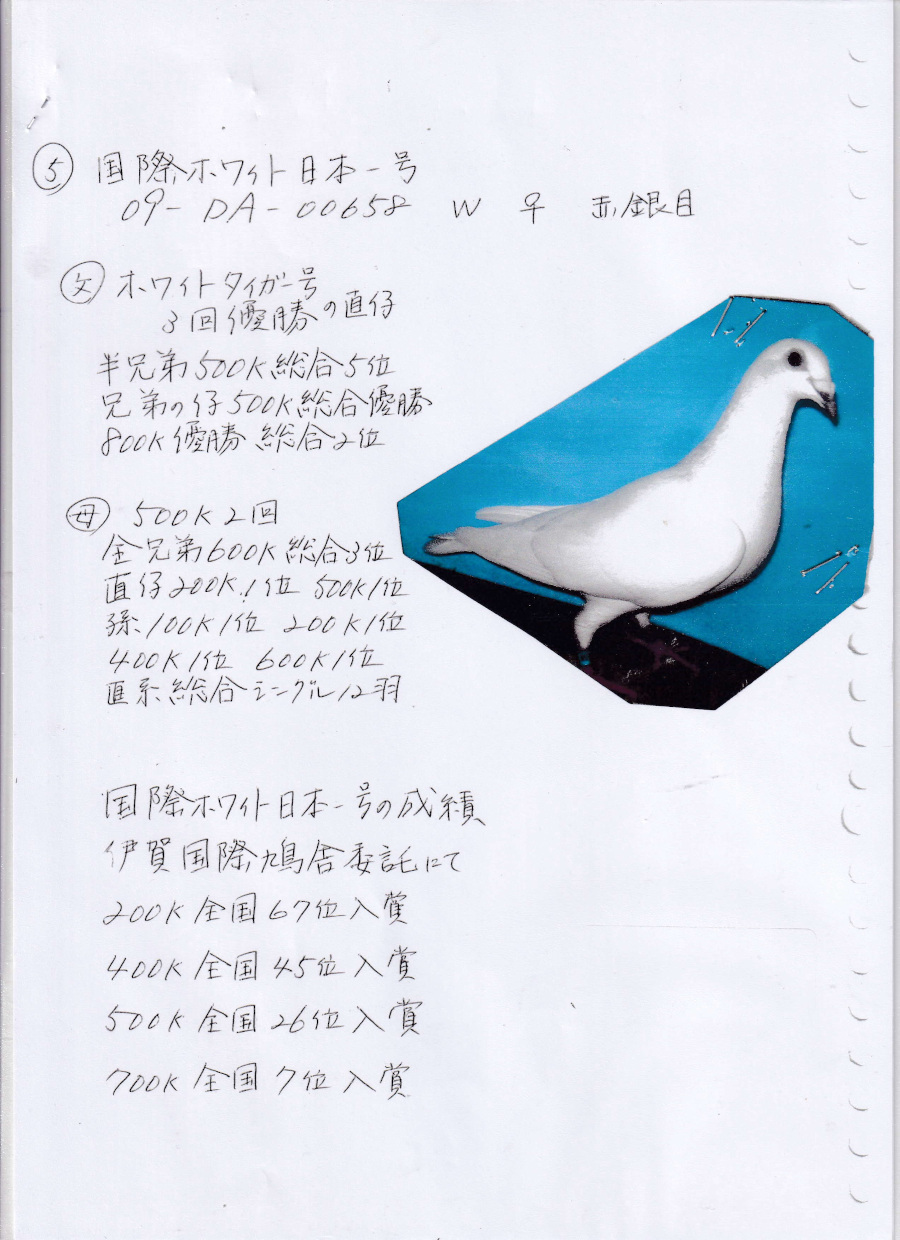 ⑤ 国際ホワイト日本一号
09-DA-00658 W ♀ 赤/銀目
㊫父 ホワイトタイガー号
3回優勝の直仔
半兄弟500K総合5位
兄弟の仔500K総合優勝
800K優勝 総合2位
母 500K2回
全兄弟600K総合3位
直仔200K1位 500K1位
孫100K1位 200K1位
400K1位 600K1位
直系総合シングル12羽
国際ホワイト日本一号の成績
伊賀国際鳩舎委託にて
200K全国67位入賞
400K全国45位入賞
500K全国26位入賞
700K全国7位入賞